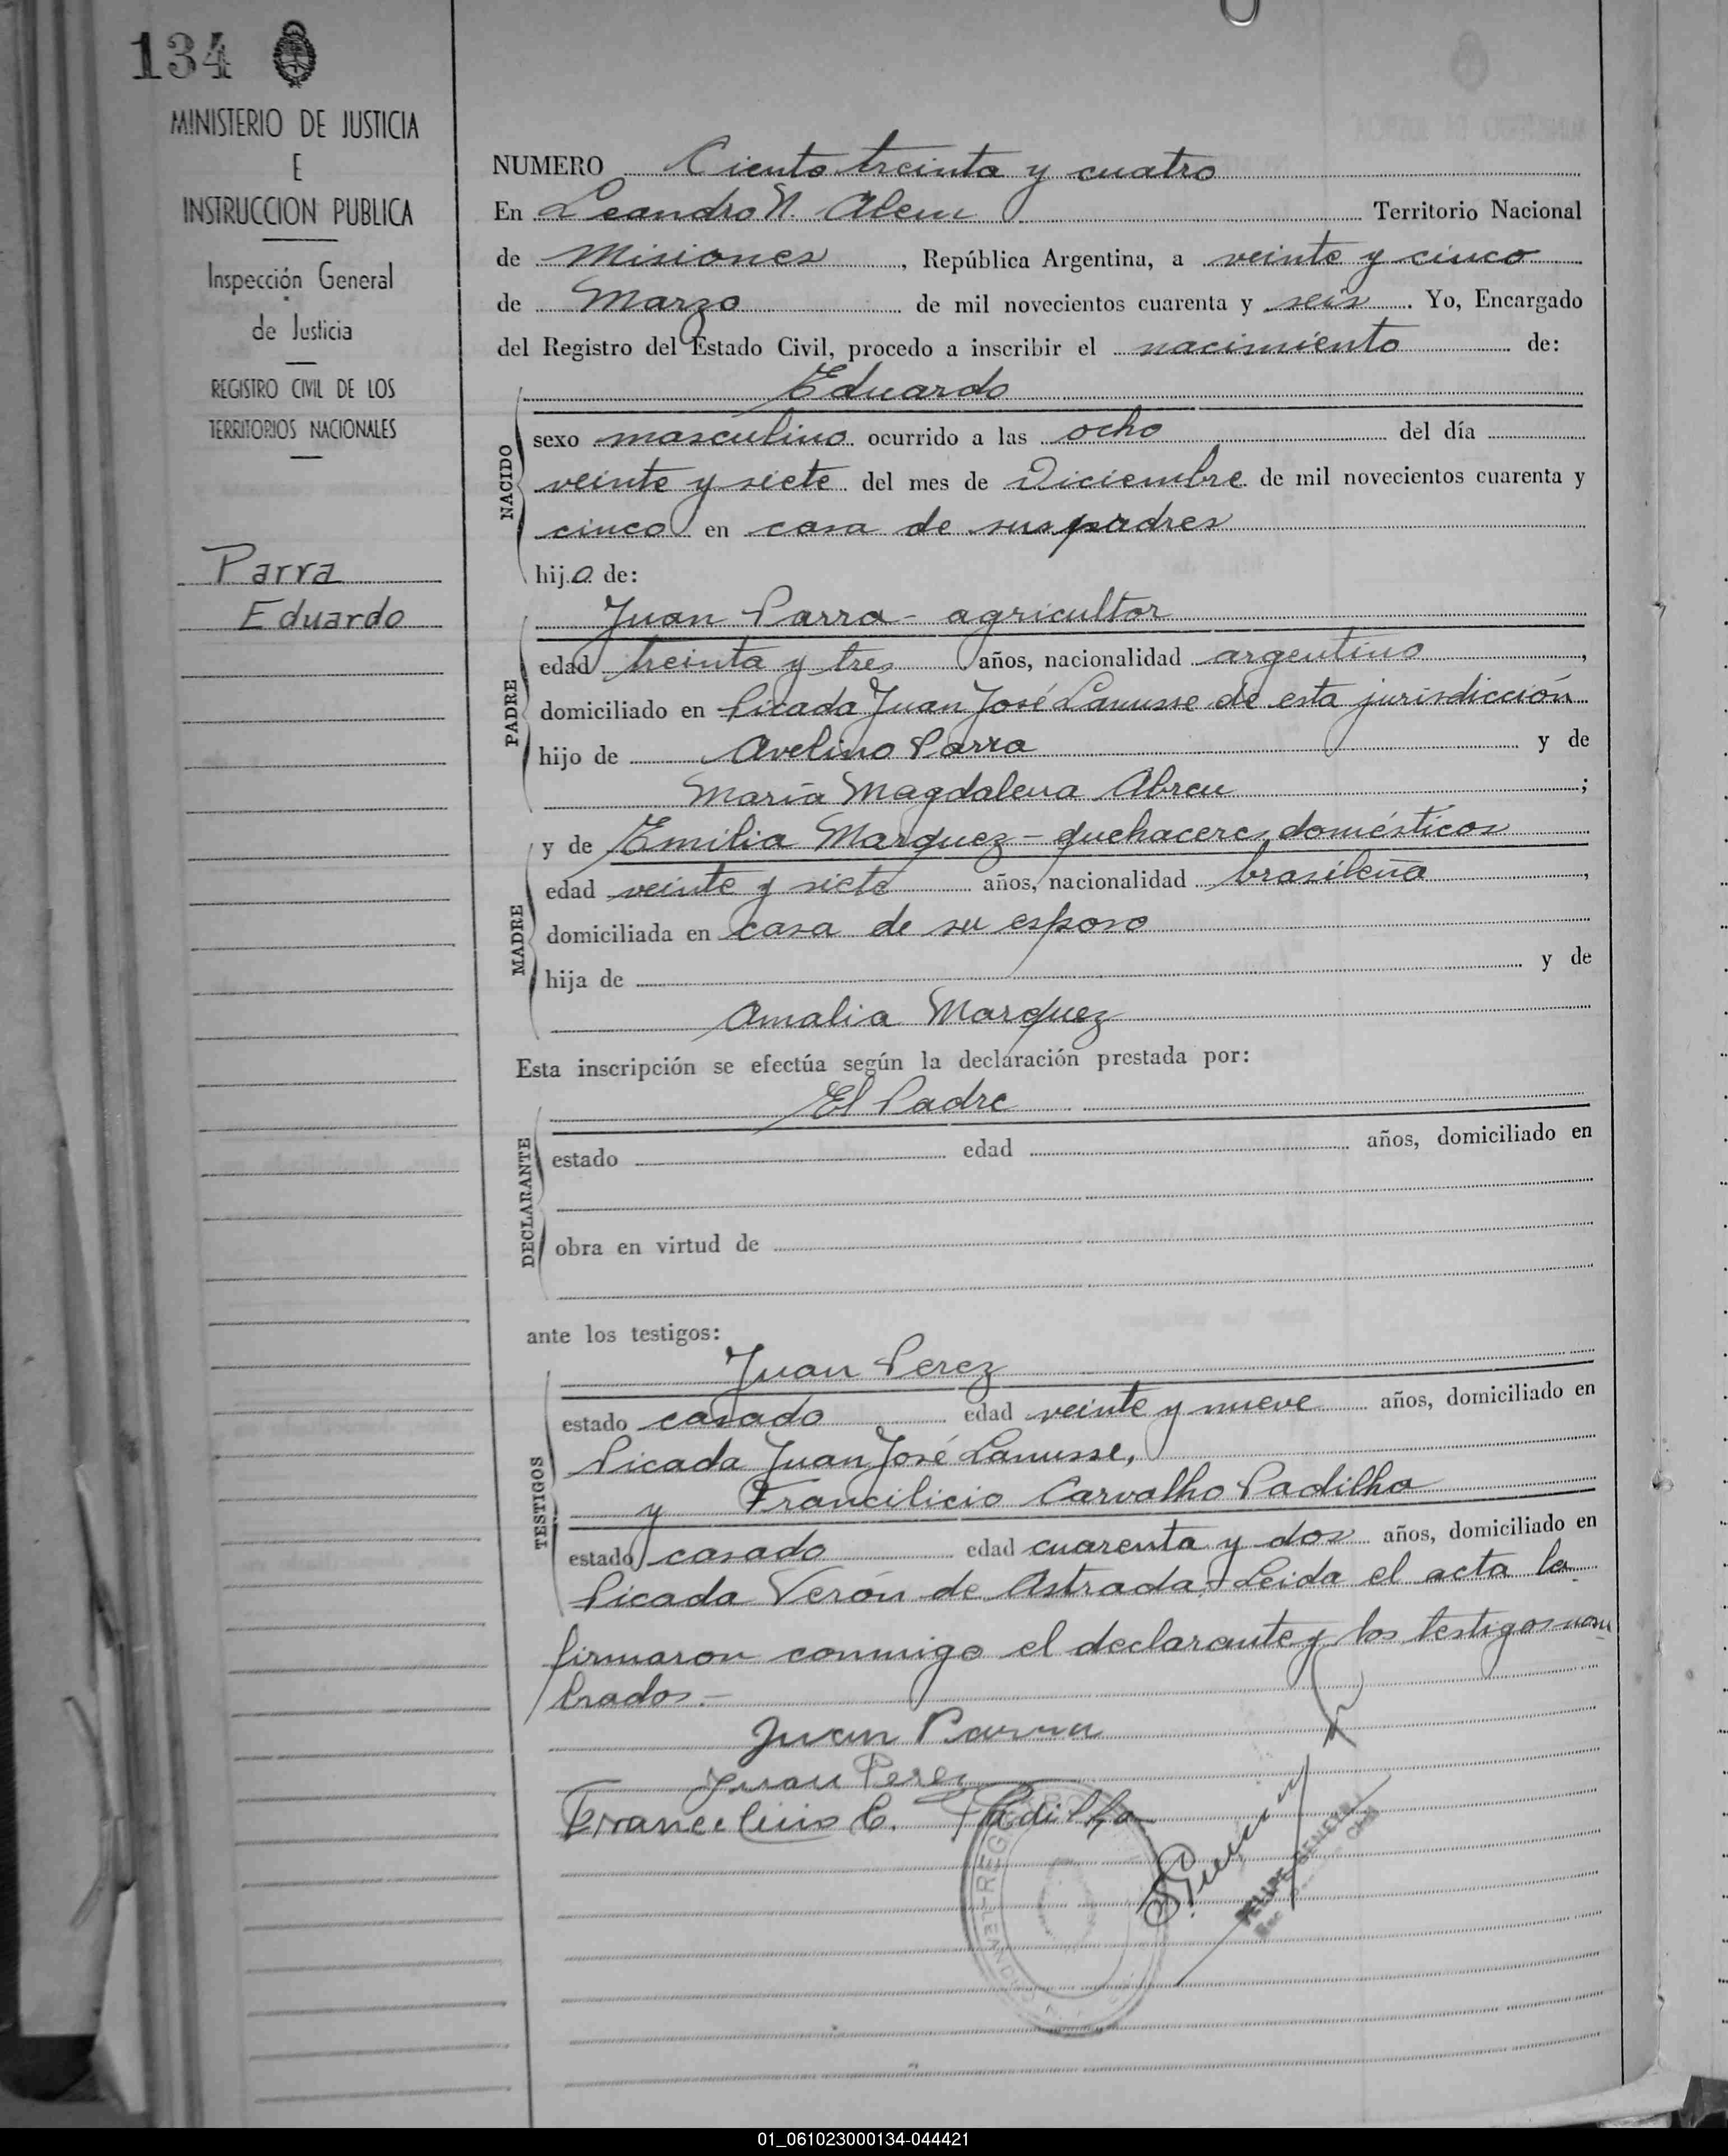 134
MINISTERIO DE JUSTICIA
E
INSTRUCCION PUBLICA
Inspección General
de Justicia
REGISTRO CIVIL DE LOS
TERRITORIOS NACIONALES
Parra
Eduardo
NUMERO Ciento treinta y cuatro
En Leandro N. Alem Territorio Nacional
de Misiones, República Argentina, a veinte y cinco
de Marzo de mil novecientos cuarenta y seis. Yo, Encargado
del Registro del Estado Civil, procedo a inscribir el nacimiento de:
NACIDO
Eduardo
sexo masculino ocurrido a las ocho del día
veinte y siete del mes de Diciembre de mil novecientos cuarenta y
cinco en casa de sus padres
hijo de:
PADRE
Juan Parra - agricultor
edad treinta y tres años, nacionalidad argentino,
domiciliado en Picada Juan José Lanusse de esta jurisdicción
hijo de Avelino Parra y de
María Magdalena Abreu;
MADRE
y de Emilia Marquez - quehaceres domésticos
edad veinte y siete años, nacionalidad brasileña,
domiciliada en casa de su esposo
hija de y de
Amalia Marquez
Esta inscripción se efectúa según la declaración prestada por:
DECLARANTE
El Padre
estado edad años, domiciliado en
obra en virtud de
ante los testigos:
TESTIGOS
Juan Perez
estado casado edad veinte y nueve años, domiciliado en
Picada Juan José Lanusse,
y Francilicio Carvalho Padilha
estado casado edad cuarenta y dos años, domiciliado en
Picada Verón de Astrada. Leida el acta la
firmaron conmigo el declarante y los testigos nom
brados.-
Juan Parra
Juan Perez
C. Padilha
FELIPE
01_061023000134-044421